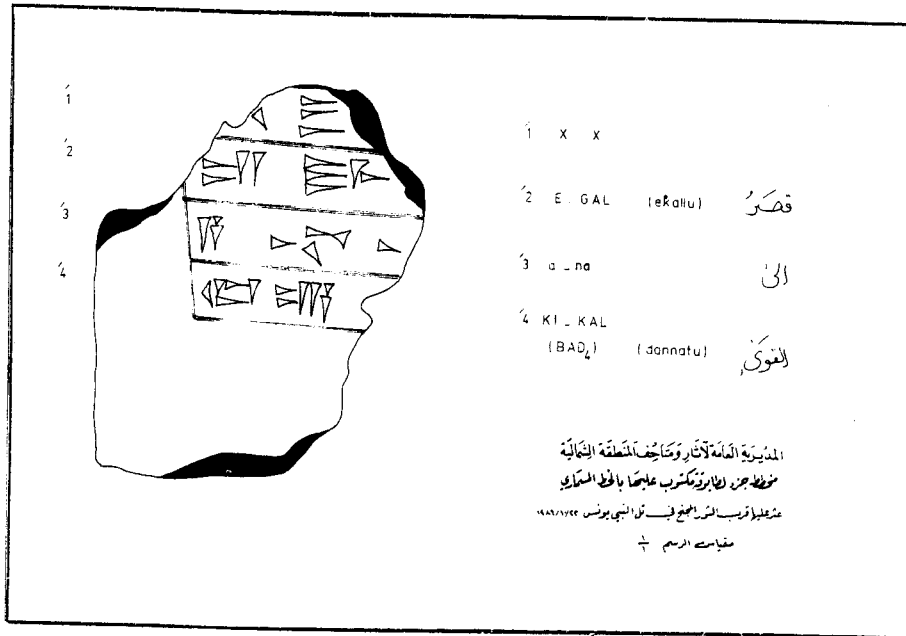 1́
2́
3́
4́
1́ x x
2́ E . GAL (ekallu) قصَرُ
3́ a _ na الىٰ
4́ KI _ KAL
(BAD₄) (dannatu) القوىٰ
المديرية العامة لآثار ومتاحف المنطقة الشمالية
مخطط جزء لطابوقة مكتوب عليها بالخط المسماري
عثر عليها قرب الثور المجنح في تل النبي يونس
مقياس الرسم ١/١